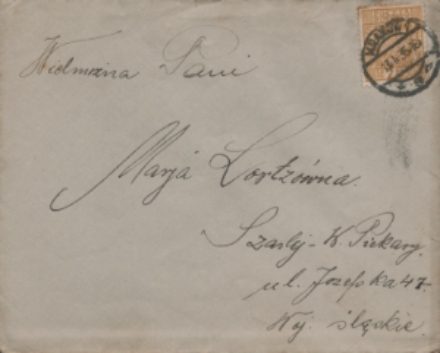 Wielmożna Pani
Marja Lortzówna.
Szarlej - W. Piekary.
ul. Józefska 47.
Woj. śląskie.